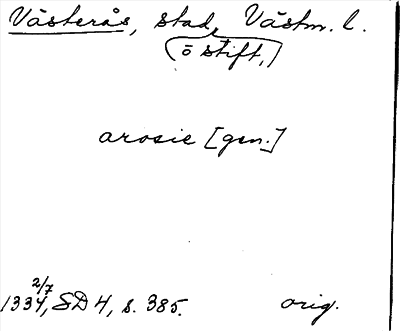 Västerås, stad, Västm. l.
ö stift,
arosie [gen.]
2/7
1334, SD 4, s. 385. orig.